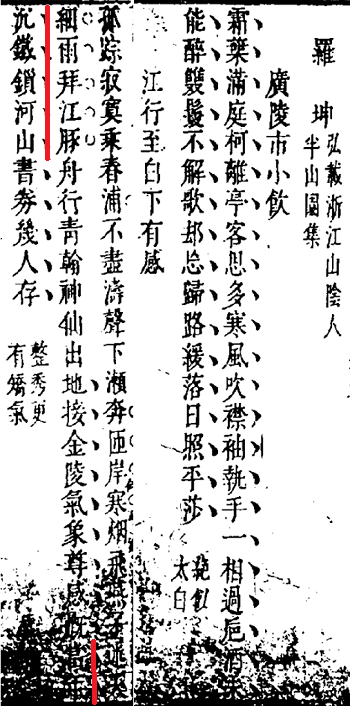 羅坤
弘載浙江山陰人
半山園集
廣陵市小飲
霜葉滿庭柯離亭客思多寒風吹襟袖執手一相過巵酒未
能醉雙鬟不解歌却忘歸路緩落日照平莎
太白
江行至白下有感
孤踪寂寞乘春浦不盡濤聲下瀨奔匝岸寒烟飛
細雨拜江豚舟行靑翰神仙出地接金陵氣象尊感旣
沉鐵鎖河山書券幾人存
整秀更
有矯氣